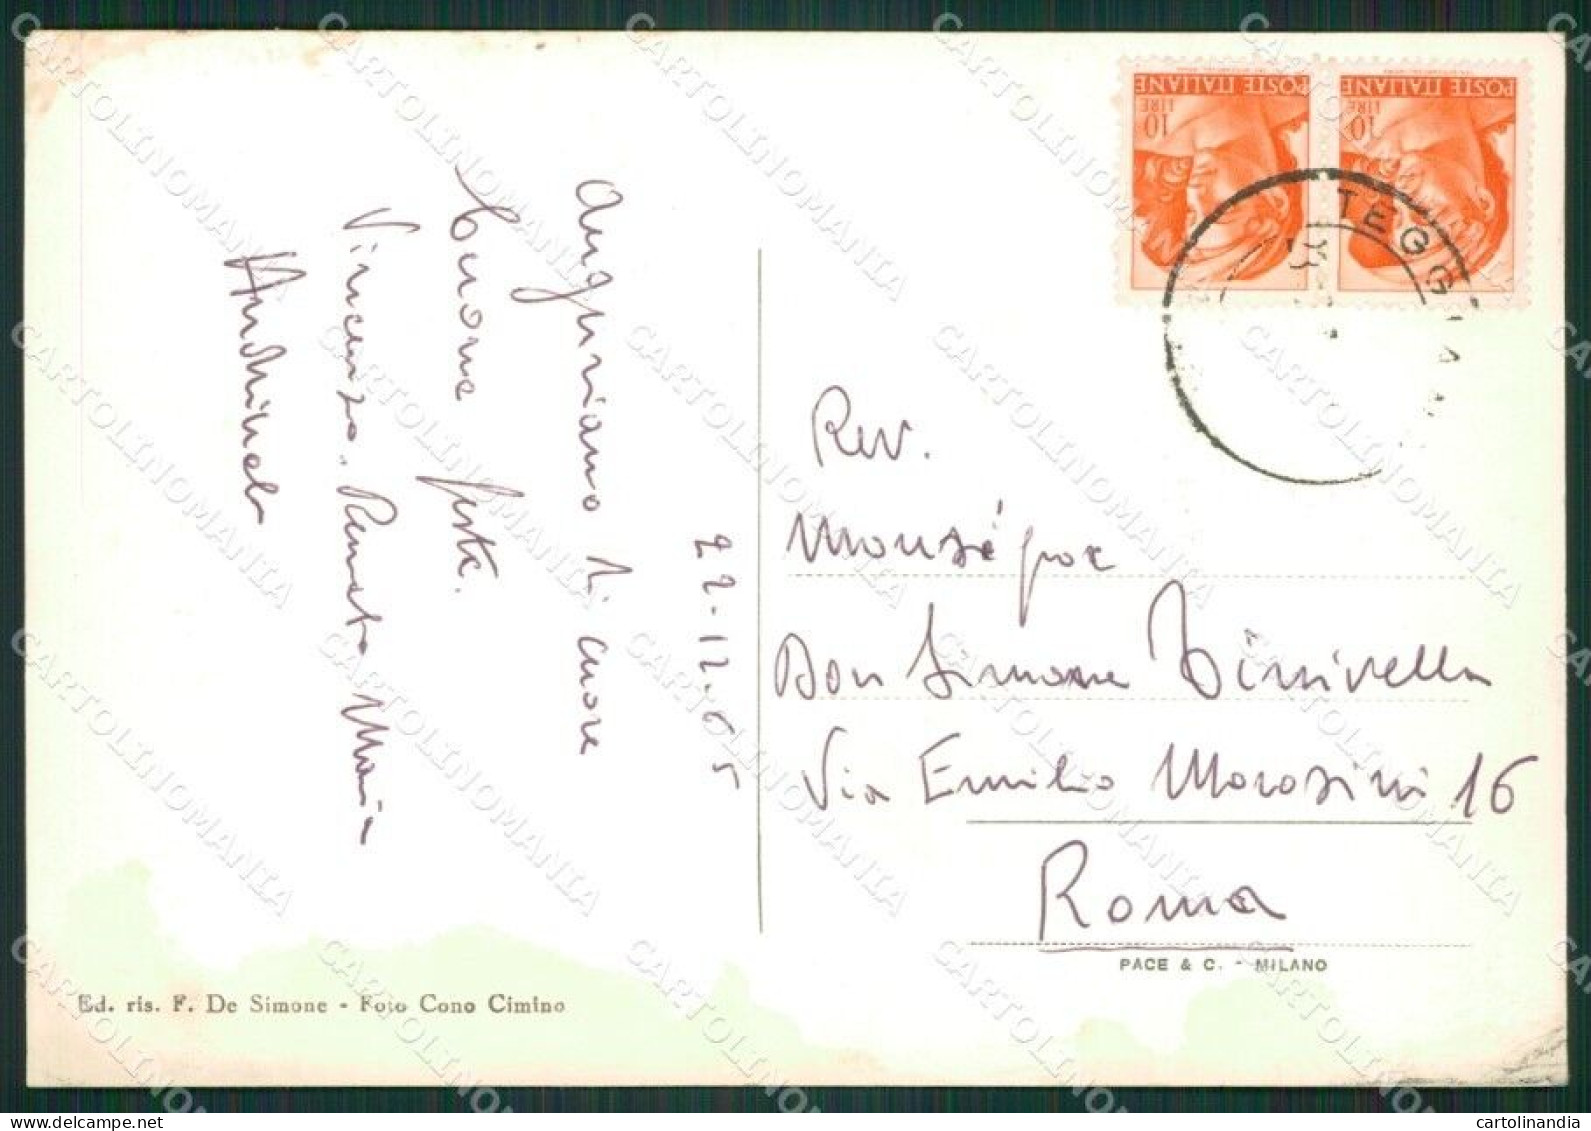 POSTE ITALIANE
LIRE
10
POSTE ITALIANE
LIRE
10
TEGGIA
22.12.65
Auguriamo di cuore
buone feste.
Vincenzo. Renato Maria
Rev.
Monsignor
Don Simone
Via Emilio Morosini 16
Roma
PACE & C. - MILANO
Ed. ris. F. De Simone - Foto Cono Cimino
CARTOLINOMANIA
cartolinandia